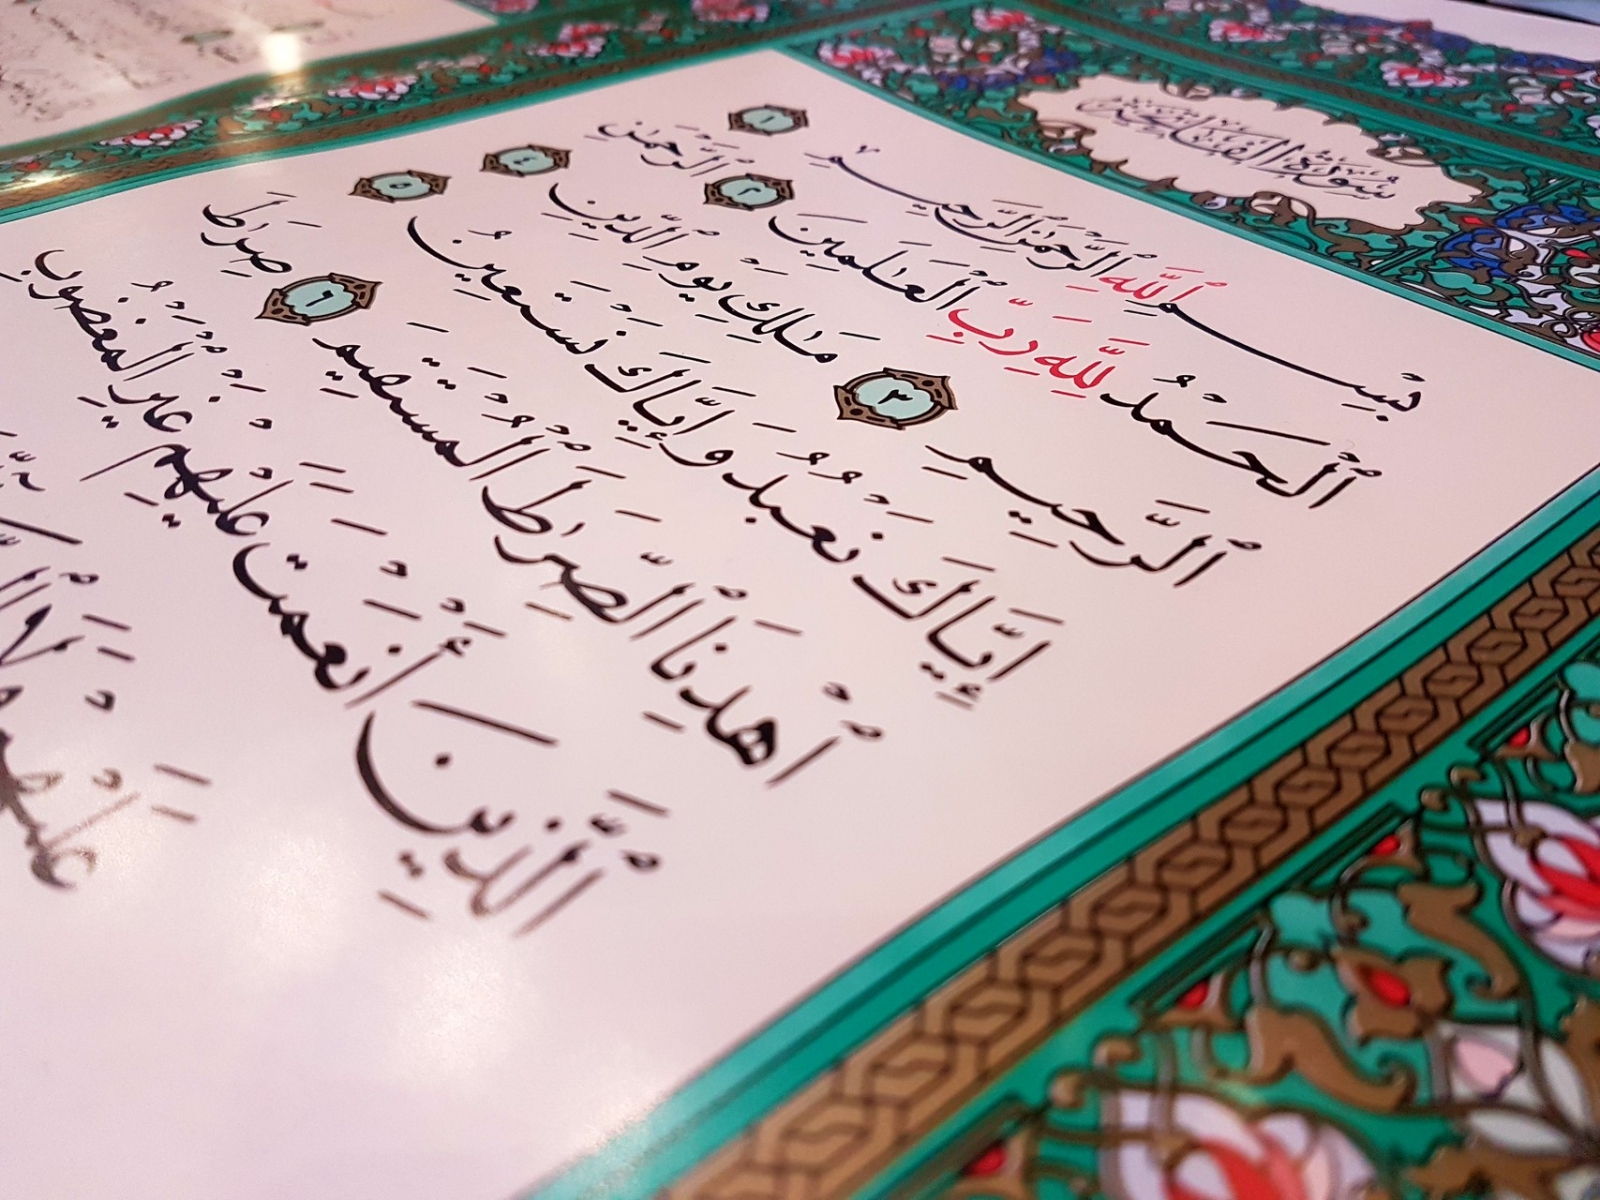 سُورَةُ الفَاتِحَةِ
بِسْمِ ٱللَّهِ ٱلرَّحْمَٰنِ ٱلرَّحِيمِ ١
ٱلْحَمْدُ لِلَّهِ رَبِّ ٱلْعَٰلَمِينَ ٢ ٱلرَّحْمَٰنِ
ٱلرَّحِيمِ ٣ مَٰلِكِ يَوْمِ ٱلدِّينِ ٤
إِيَّاكَ نَعْبُدُ وَإِيَّاكَ نَسْتَعِينُ ٥
ٱهْدِنَا ٱلصِّرَٰطَ ٱلْمُسْتَقِيمَ ٦ صِرَٰطَ
ٱلَّذِينَ أَنْعَمْتَ عَلَيْهِمْ غَيْرِ ٱلْمَغْضُوبِ
عَلَيْهِمْ وَلَا